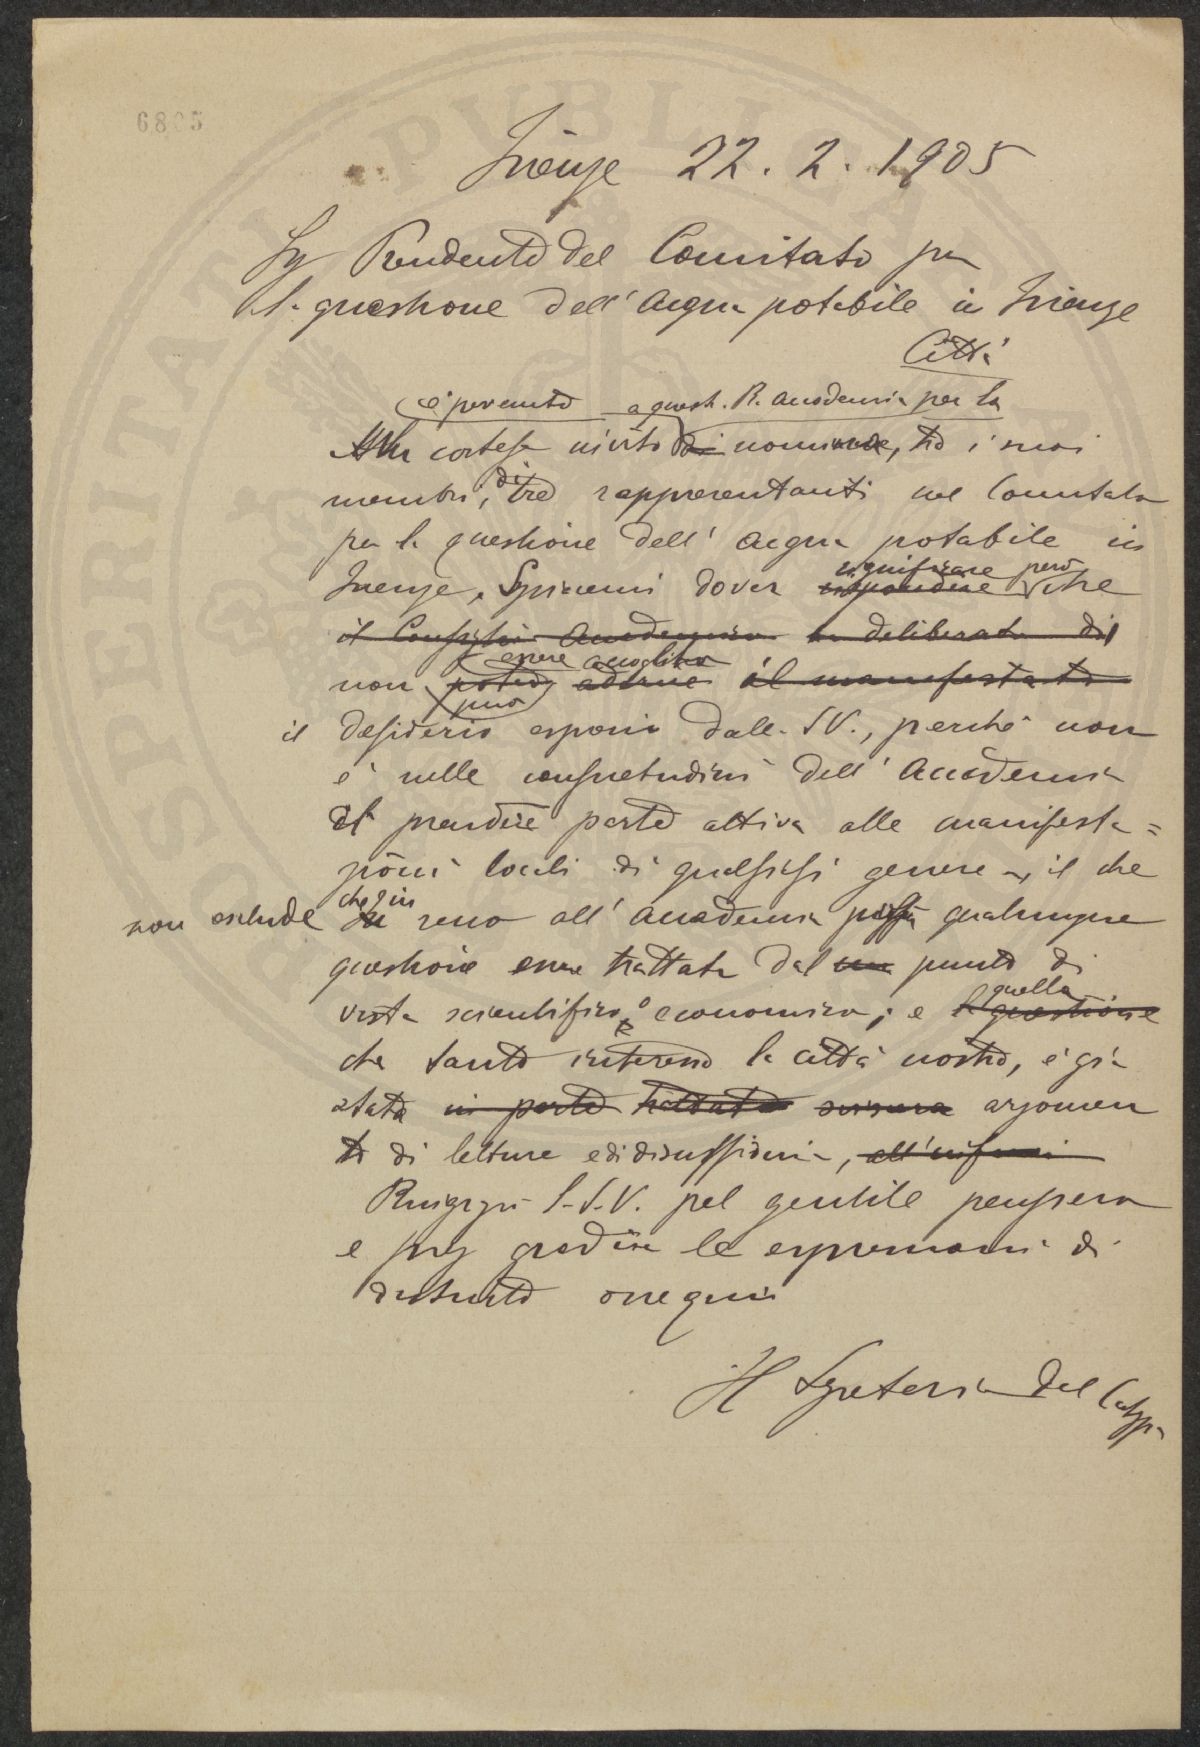 6805
Firenze 22. 2. 1905
Sig Presidente del Comitato per
la questione dell' Acqua potabile in Firenze
Città
è pervenuto a questa R. Accademia per la
cortese invito di nomina, tra i suoi
membri, di tre rappresentanti nel Comitato
per la questione dell' acqua potabile in
Firenze. Spiacemi dover rispondere significare però che
il Consiglio Accademico ha deliberato di
non poter può essere accoglier aderire il manifestato
il desiderio espresso dalla S.V., perchè non
è nelle consuetudini dell' Accademia
di prendere parte attiva alle manifesta=
zioni locali di qualsiasi genere, il che
non esclude che in seno all' Accademia possa qualunque
questione essere trattata dal punto di
vista scientifico o economico; e la questione quella
che tanto interessa la città nostra, è già
stata in parte trattata argomen
to di letture e di discussioni,
Ringrazio la S.V. pel gentile pensiero
e gradire le espressioni di
distinto ossequio
Il Segretario del